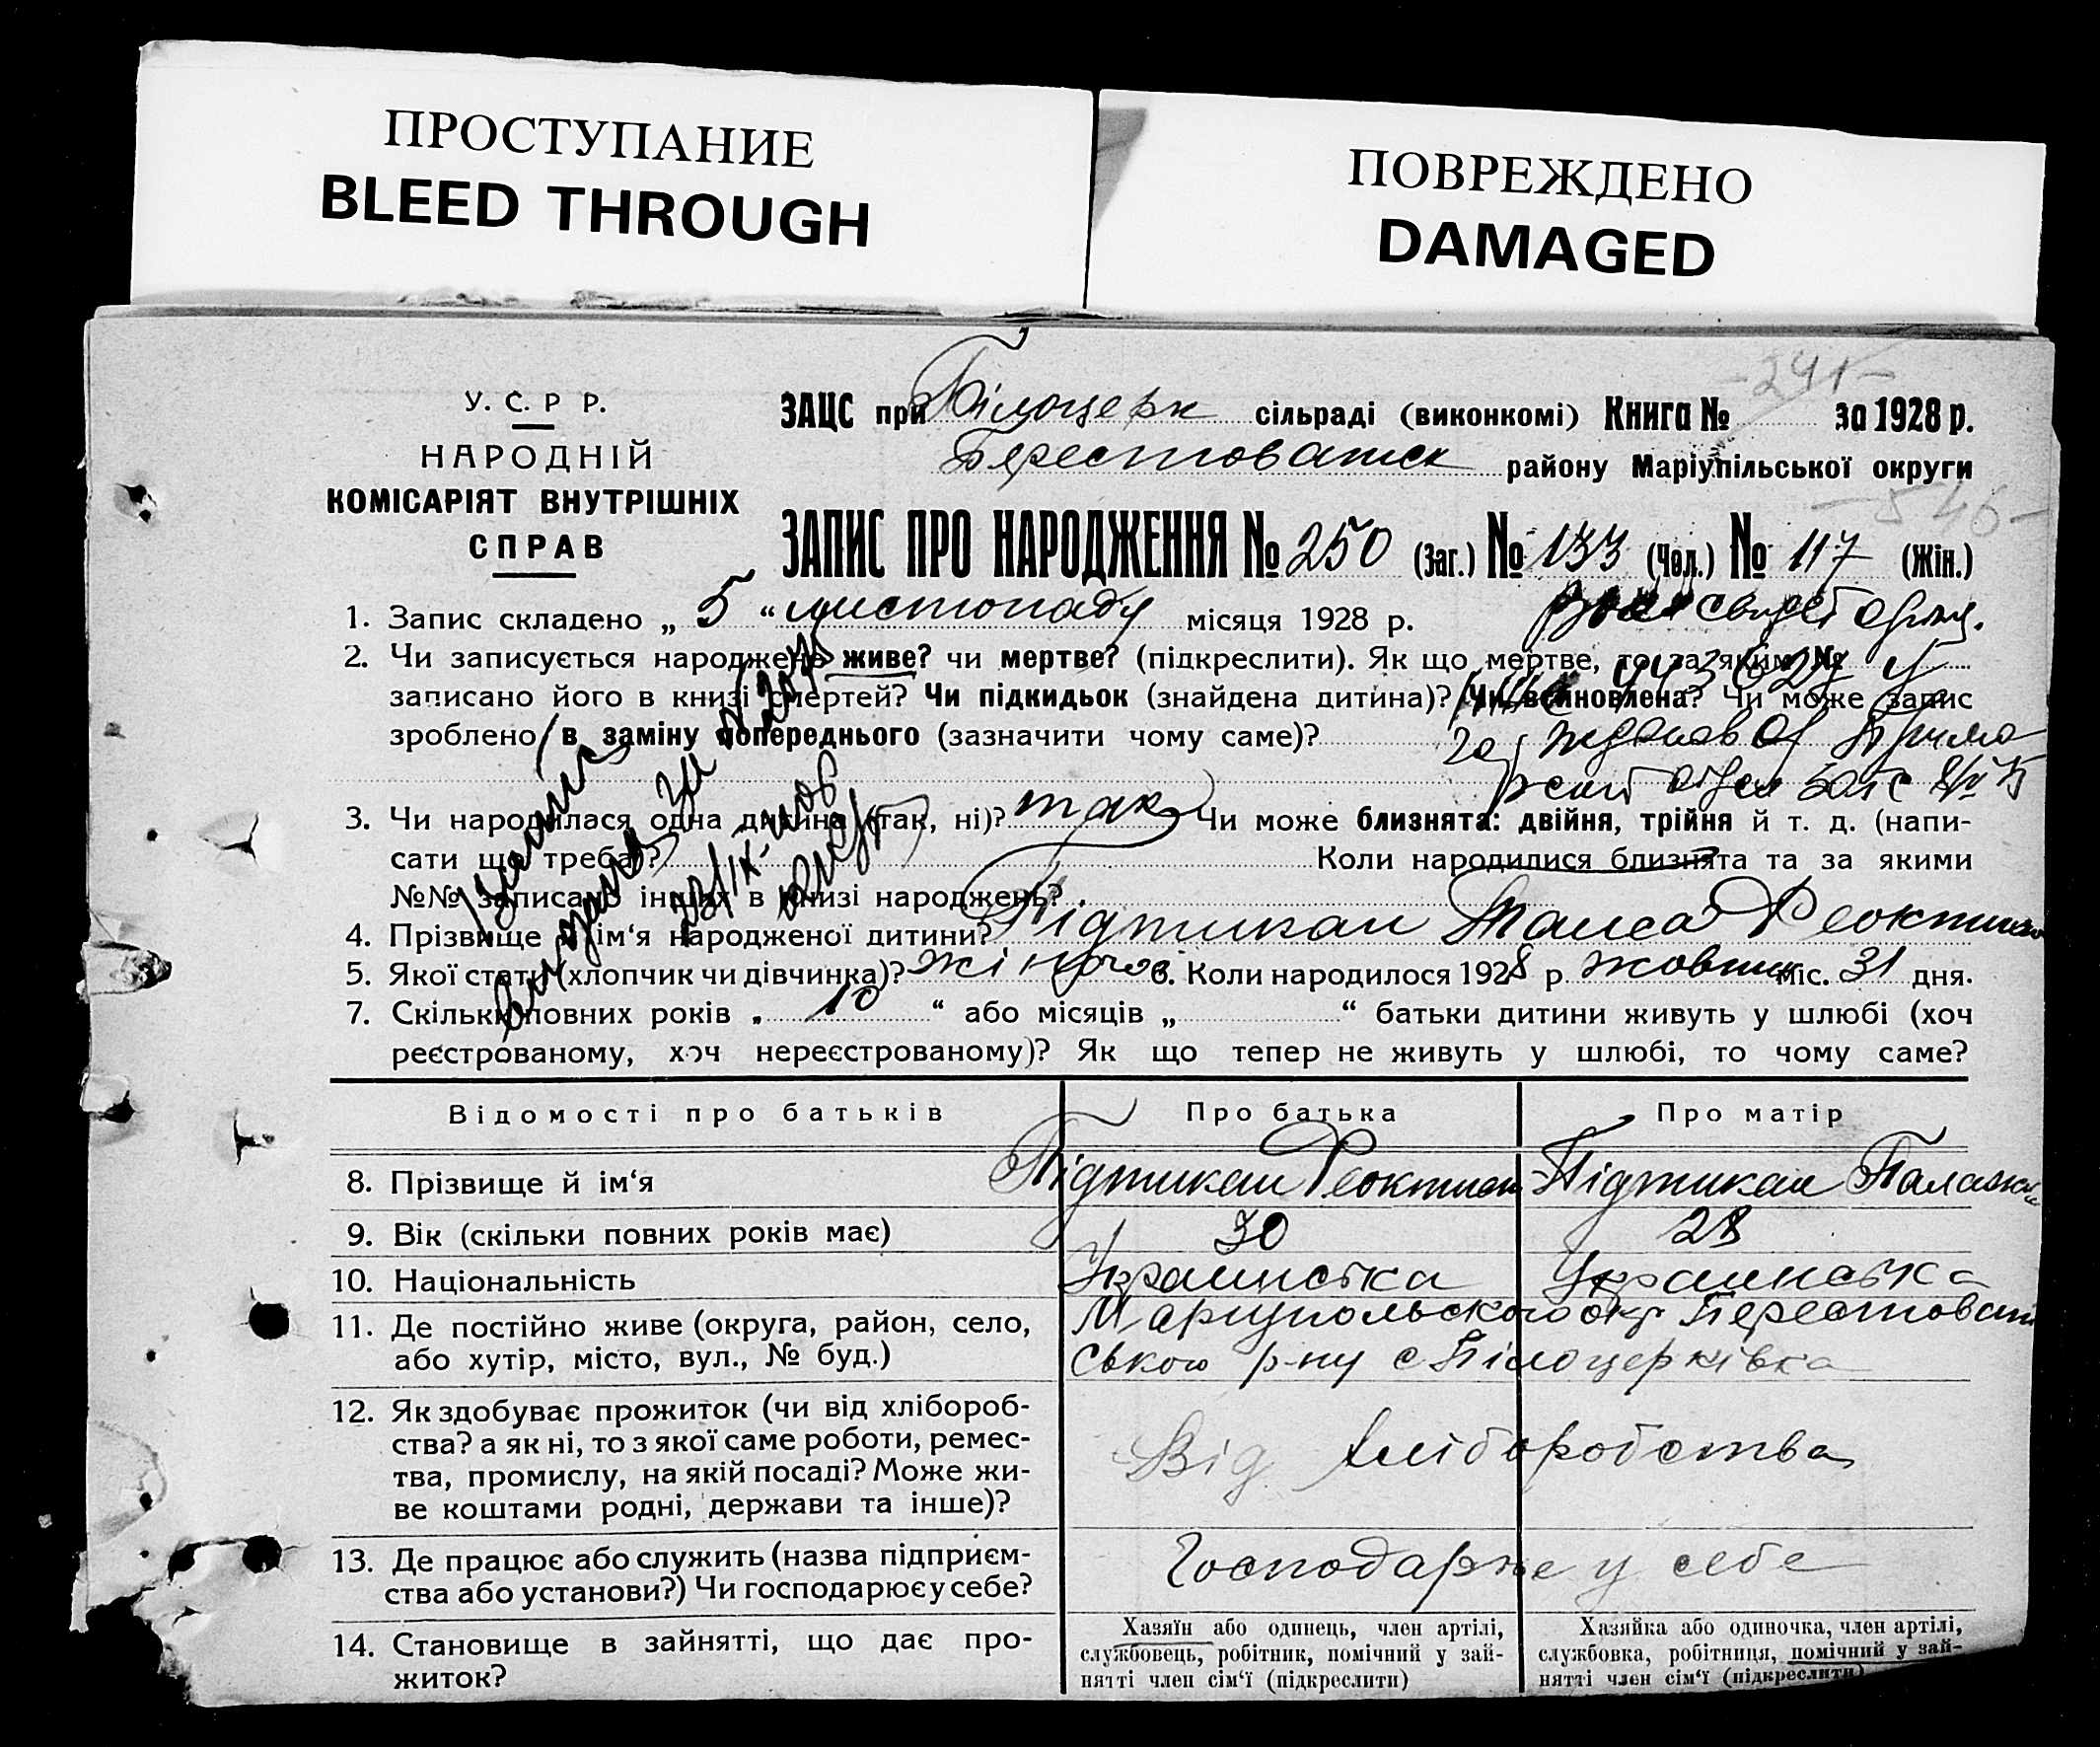 ПРОСТУПАНИЕ
BLEED THROUGH
ПОВРЕЖДЕНО
DAMAGED
- 241 -
У. С. Р Р.
НАРОДНІЙ
КОМІСАРІЯТ ВНУТРІШНІХ
СПРАВ
ЗАЦС при Білоцерк сільраді (виконкомі) Книга № за 1928 р.
Берестоватск району Маріупільської округи
- 546 -
ЗАПИС ПРО НАРОДЖЕННЯ № 250 (Заг.) № 133 (Чол.) № 117 (Жін.)
1. Запис складено „ 5 “ листопаду місяця 1928 р.
2. Чи записується народжене живе? чи мертве? (підкреслити). Як що мертве, то за яким №
записано його в книзі смертей? Чи підкидьок (знайдена дитина)? Чи всиновлена? Чи може запис
зроблено в заміну попереднього (зазначити чому саме)?
3. Чи народилася одна дитина (так, ні)? так Чи може близнята: двійня, трійня й т. д. (напи-
сати що треба)? Коли народилися близнята та за якими
№№ записано інших в книзі народжень?
4. Прізвище й ім‘я народженої дитини? Підтикан Таиса Феоктист
5. Якої стати (хлопчик чи дівчинка)? жіночоє 6. Коли народилося 1928 р. жовтня міс. 31 дня.
7. Скільки повних років „ 10 “ або місяців „ “ батьки дитини живуть у шлюбі (хоч
реєстрованому, хоч нереєстрованому)? Як що тепер не живуть у шлюбі, то чому саме?
Відомості про батьків Про батька Про матір
8. Прізвище й ім‘я Підтикан Феоктист Підтикан Палажка
9. Вік (скільки повних років має) 30 28
10. Національність Украинська Украинська
11. Де постійно живе (округа, район, село,
або хутір, місто, вул., № буд.)
Мариупольского окр Берестоват
ського р-ну с Білоцерківка
12. Як здобуває прожиток (чи від хлібороб-
ства? а як ні, то з якої саме роботи, ремес-
тва, промислу, на якій посаді? Може жи-
ве коштами родні, держави та інше)?
Від хліборобства
13. Де працює або служить (назва підприєм-
ства або установи?) Чи господарює у себе?
Господарює у себе
14. Становище в зайнятті, що дає про-
житок?
Хазяїн або одинець, член артілі,
службовець, робітник, помічний у зай-
нятті член сім‘ї (підкреслити)
Хазяйка або одиночка, член артілі,
службовка, робітниця, помічний у зай-
нятті член сім‘ї (підкреслити)